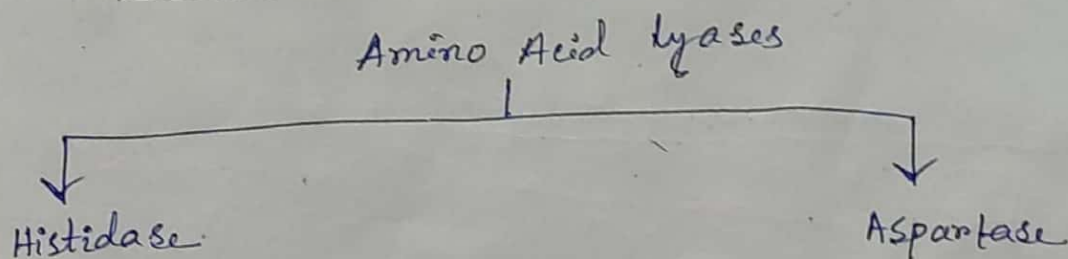 Amino Acid Lyases
Histidase
Aspartase